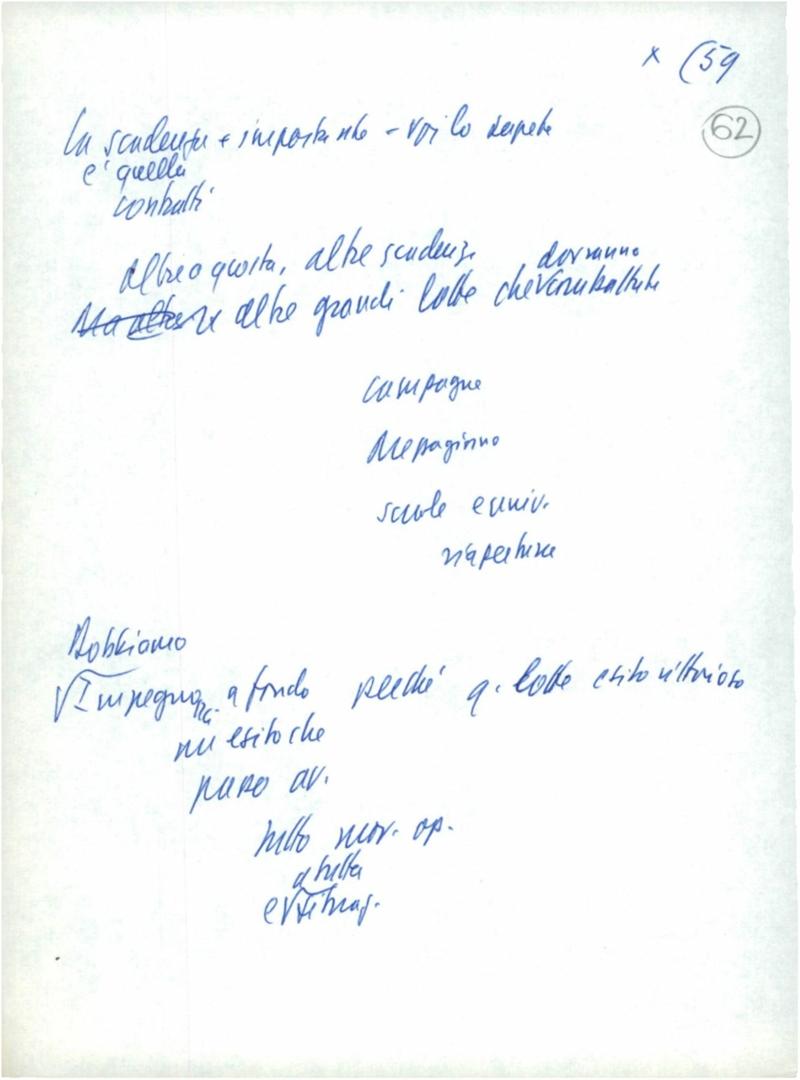 x (59
62
La scadenza + importante - voi lo sapete
è quella
contratti
Oltre a questa, altre scadenze
dovranno
Ma altre altre grandi lotte che combattute
campagne
Mezzogiorno
scuole e univ.
riapertura
Dobbiamo
Impegnarci a fondo perché q. lotte esito vittorioso
un esito che
passo av.
tutto mov. op.
a tutta
e